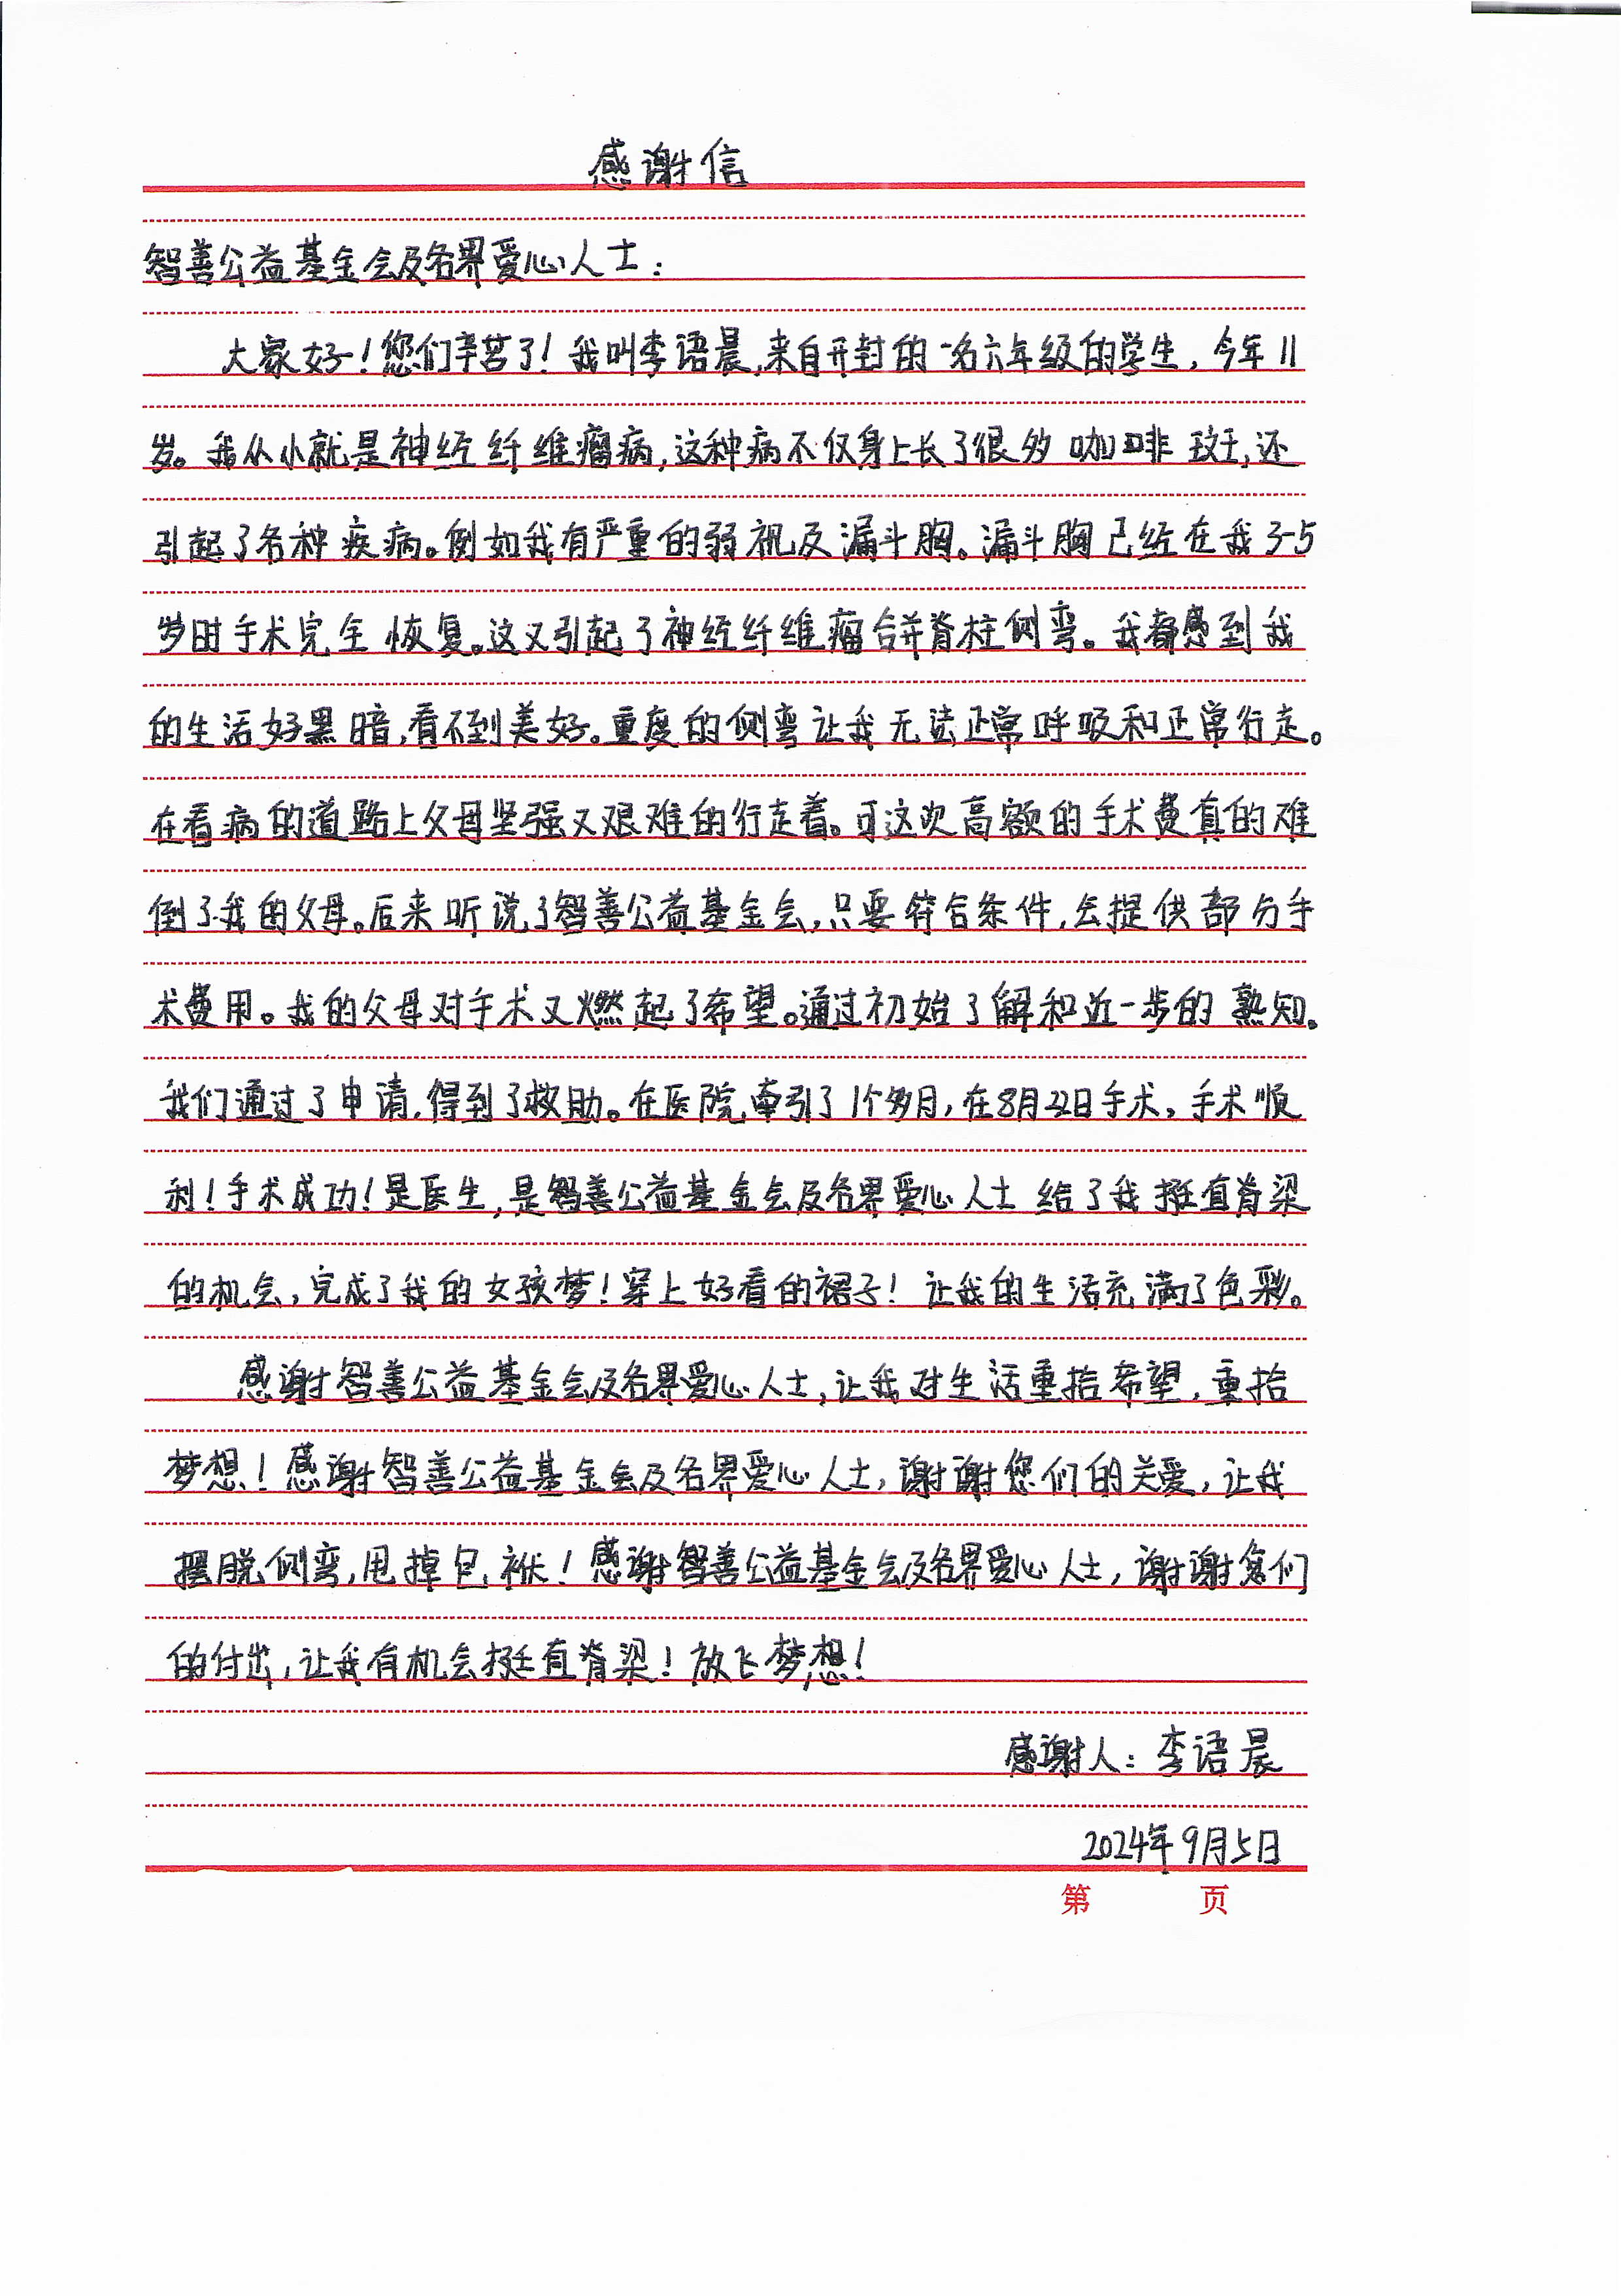 感谢信
智善公益基金会及各界爱心人士：
大家好！您们辛苦了！我叫李语晨,来自开封的一名六年级的学生，今年11
岁。我从小就是神经纤维瘤病,这种病不仅身上长了很多咖啡斑,还
引起了各种疾病。例如我有严重的弱视及漏斗胸。漏斗胸已经在我3-5
岁时手术完全恢复。这又引起了神经纤维瘤合并脊柱侧弯。我都感到我
的生活好黑暗,看不到美好。重度的侧弯让我无法正常呼吸和正常行走。
在看病的道路上父母坚强又艰难的行走着。可这次高额的手术费真的难
倒了我的父母。后来听说了智善公益基金会,只要符合条件,会提供部分手
术费用。我的父母对手术又燃起了希望。通过初始了解和近一步的熟知。
我们通过了申请,得到了救助。在医院牵引了1个多月,在8月22日手术,手术顺
利！手术成功！是医生,是智善公益基金会及各界爱心人士给了我挺直脊梁
的机会,完成了我的女孩梦！穿上好看的裙子！让我的生活充满了色彩。
感谢智善公益基金会及各界爱心人士,让我对生活重拾希望,重拾
梦想！感谢智善公益基金会及各界爱心人士,谢谢您们的关爱,让我
摆脱侧弯,甩掉包袱！感谢智善公益基金会及各界爱心人士,谢谢您们
的付出,让我有机会挺直脊梁！放飞梦想！
感谢人：李语晨
2024年9月5日
第 页